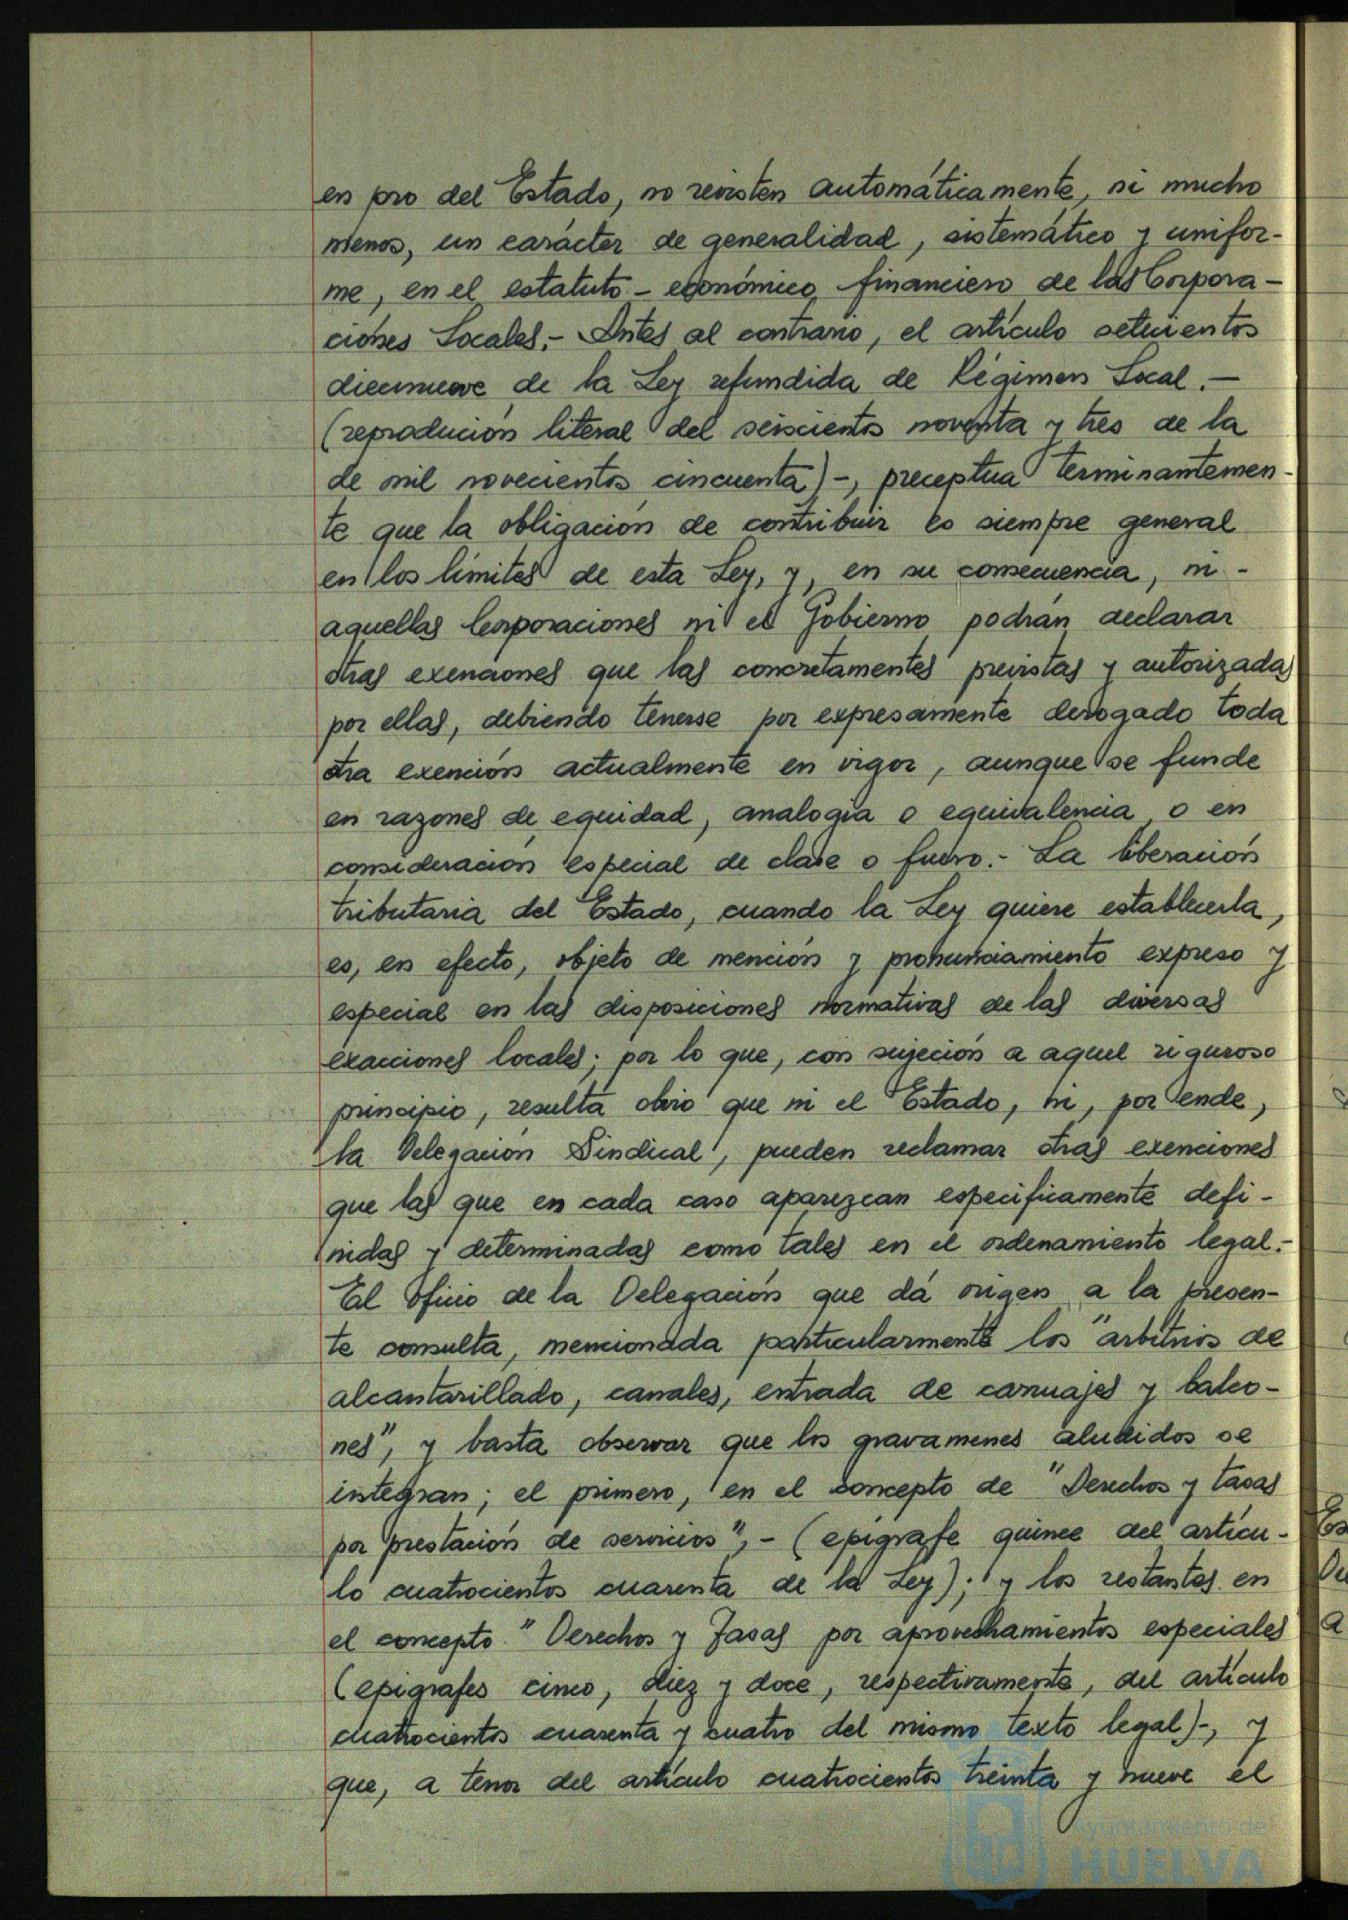 en pro del Estado, no revisten automáticamente, ni mucho
menos, un carácter de generalidad, sistemático y unifor-
me, en el estatuto - económico financiero de las Corpora-
ciones Locales.- Antes al contrario, el artículo setecientos
diecinueve de la Ley refundida de Régimen Local.-
(reprodución literal del seiscientos noventa y tres de la
de mil novecientos cincuenta)-, preceptua terminantemen-
te que la obligación de contribuir es siempre general
en los límites de esta Ley, y, en su consecuencia, ni -
aquellas Corporaciones ni el Gobierno podrán declarar
otras exenciones que las concretamentes previstas y autorizadas
por ellas, debiendo tenerse por expresamente derogado toda
otra exención actualmente en vigor, aunque se funde
en razones de equidad, analogia o equivalencia, o en
consideración especial de clase o fuero.- La liberación
tributaria del Estado, cuando la Ley quiere establecerla,
es, en efecto, objeto de mención y pronunciamiento expreso y
especial en las disposiciones normativas de las diversas
exacciones locales; por lo que, con sujeción a aquel riguroso
principio, resulta obvio que ni el Estado, ni, por ende,
la Delegación Sindical, pueden reclamar otras exenciones
que las que en cada caso aparezcan especificamente defi-
nidas y determinadas como tales en el ordenamiento legal.-
El oficio de la Delegación que dá origen a la presen-
te consulta, mencionada particularmente los "arbitrios de
alcantarillado, canales, entrada de carruajes y balco-
nes", y basta observar que los gravamenes aludidos se
integran; el primero, en el concepto de "Derechos y tasas
por prestación de servicios",- (epígrafe quince del artícu-
lo cuatrocientos cuarenta de la Ley); y los restantes en
el concepto "Derechos y Tasas por aprovechamientos especiales
(epigrafes cinco, diez y doce, respectivamente, del artículo
cuatrocientos cuarenta y cuatro del mismo texto legal)-, y
que, a tenor del artículo cuatrocientos treinta y nueve el
Ayuntamiento de
HUELVA